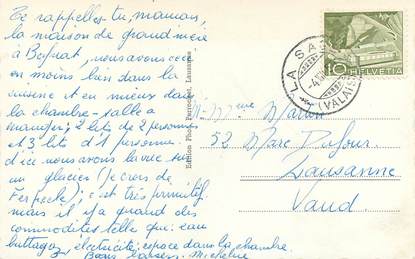 Te rappelles-tu, maman,
la maison de grand'mère
à Beyrat, nous avons ceci
en moins bien dans la
cuisine et en mieux dans
la chambre-salle à
manger; 2 lits de 2 personnes
et 3 lits d'1 personne.
d'ici nous avons la vue sur
un glacier (je crois de
Ferpecle); c'est très primitif,
mais il y a grand des
commodités telle que: eau
buttagaz, électricité, espace dans la chambre.
Bons baisers. Micheline
Edition Photo Perrochet, Lausanne
LA SAGE
(VALAIS)
10 HELVETIA
M. Mme Marion
52 Marc Dufour
Lausanne
Vaud.